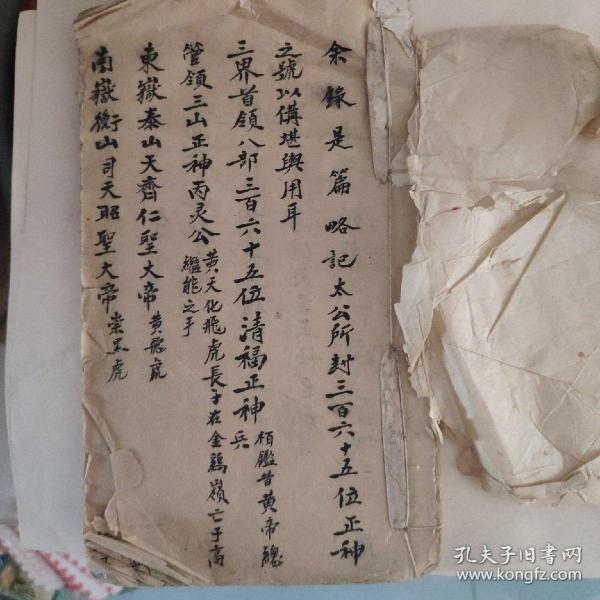 余錄是篇略記太公所封三百六十五位正神
之號以備堪輿用耳
三界首領八部三百六十五位清福正神 栢鑑昔黄帝總兵
管領三山正神丙灵公 黄天化飛虎長子在金鷄嶺亡于高繼能之手
東嶽泰山天齊仁聖大帝 黄飛虎
南嶽衡山司天昭聖大帝 崇黑虎
孔夫子旧书网
www.kongfz.com